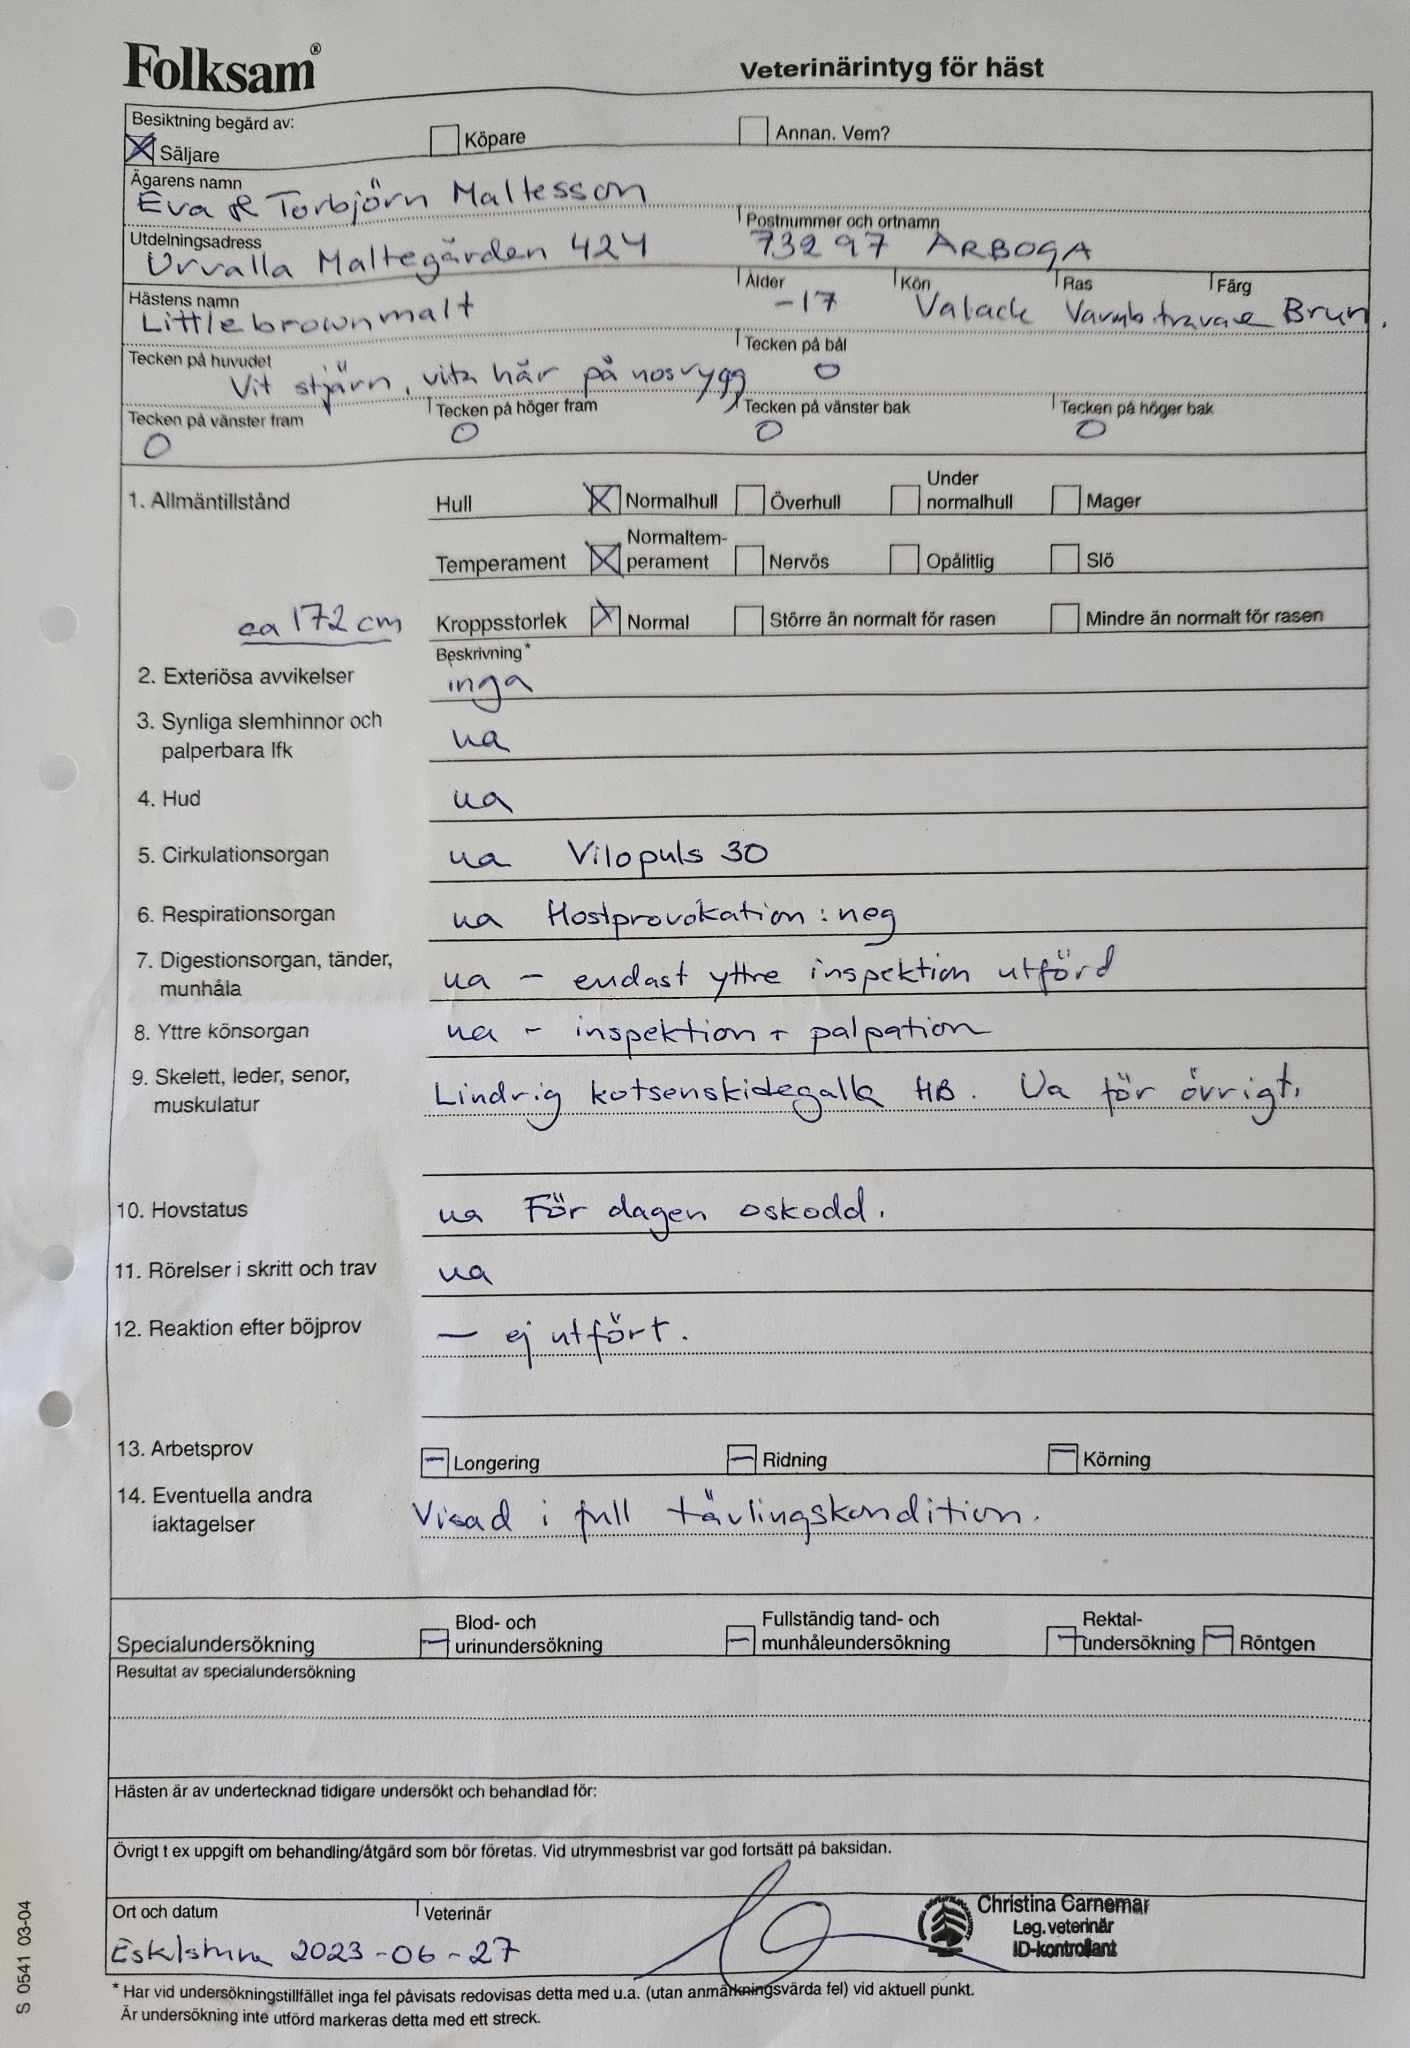 Folksam®
Veterinärintyg för häst
Besiktning begärd av:
Säljare
Köpare
Annan. Vem?
Ägarens namn
Eva & Torbjörn Maltesson
Utdelningsadress
Urvalla Maltegården 424
Postnummer och ortnamn
732 97 ARBOGA
Hästens namn
Littlebrownmalt
Ålder
-17
Kön
Valack
Ras
Varmb. travare
Färg
Brun.
Tecken på huvudet
Vit stjärn, vita hår på nosrygg
Tecken på bål
0
Tecken på vänster fram
0
Tecken på höger fram
0
Tecken på vänster bak
0
Tecken på höger bak
0
1. Allmäntillstånd
Hull
Normalhull
Överhull
Under
normalhull
Mager
Temperament
Normaltem-
perament
Nervös
Opålitlig
Slö
ca 172 cm
Kroppsstorlek
Normal
Större än normalt för rasen
Mindre än normalt för rasen
Beskrivning*
2. Exteriösa avvikelser
inga
3. Synliga slemhinnor och
palperbara lfk
ua
4. Hud
ua
5. Cirkulationsorgan
ua Vilopuls 30
6. Respirationsorgan
ua Hostprovokation: neg
7. Digestionsorgan, tänder,
munhåla
ua - endast yttre inspektion utförd
8. Yttre könsorgan
ua - inspektion + palpation
9. Skelett, leder, senor,
muskulatur
Lindrig kotsenskidegalla HB. Ua för övrigt.
10. Hovstatus
ua För dagen oskodd.
11. Rörelser i skritt och trav
ua
12. Reaktion efter böjprov
— ej utfört.
13. Arbetsprov
Longering
Ridning
Körning
14. Eventuella andra
iaktagelser
Visad i full tävlingskondition.
Specialundersökning
Blod- och
urinundersökning
Fullständig tand- och
munhåleundersökning
Rektal-
undersökning
Röntgen
Resultat av specialundersökning
Hästen är av undertecknad tidigare undersökt och behandlad för:
Övrigt t ex uppgift om behandling/åtgärd som bör företas. Vid utrymmesbrist var god fortsätt på baksidan.
Ort och datum
Eskilstuna 2023-06-27
Veterinär
Christina Carnemar
Leg. veterinär
ID-kontrollant
* Har vid undersökningstillfället inga fel påvisats redovisas detta med u.a. (utan anmärkningsvärda fel) vid aktuell punkt.
Är undersökning inte utförd markeras detta med ett streck.
S 0541 03-04